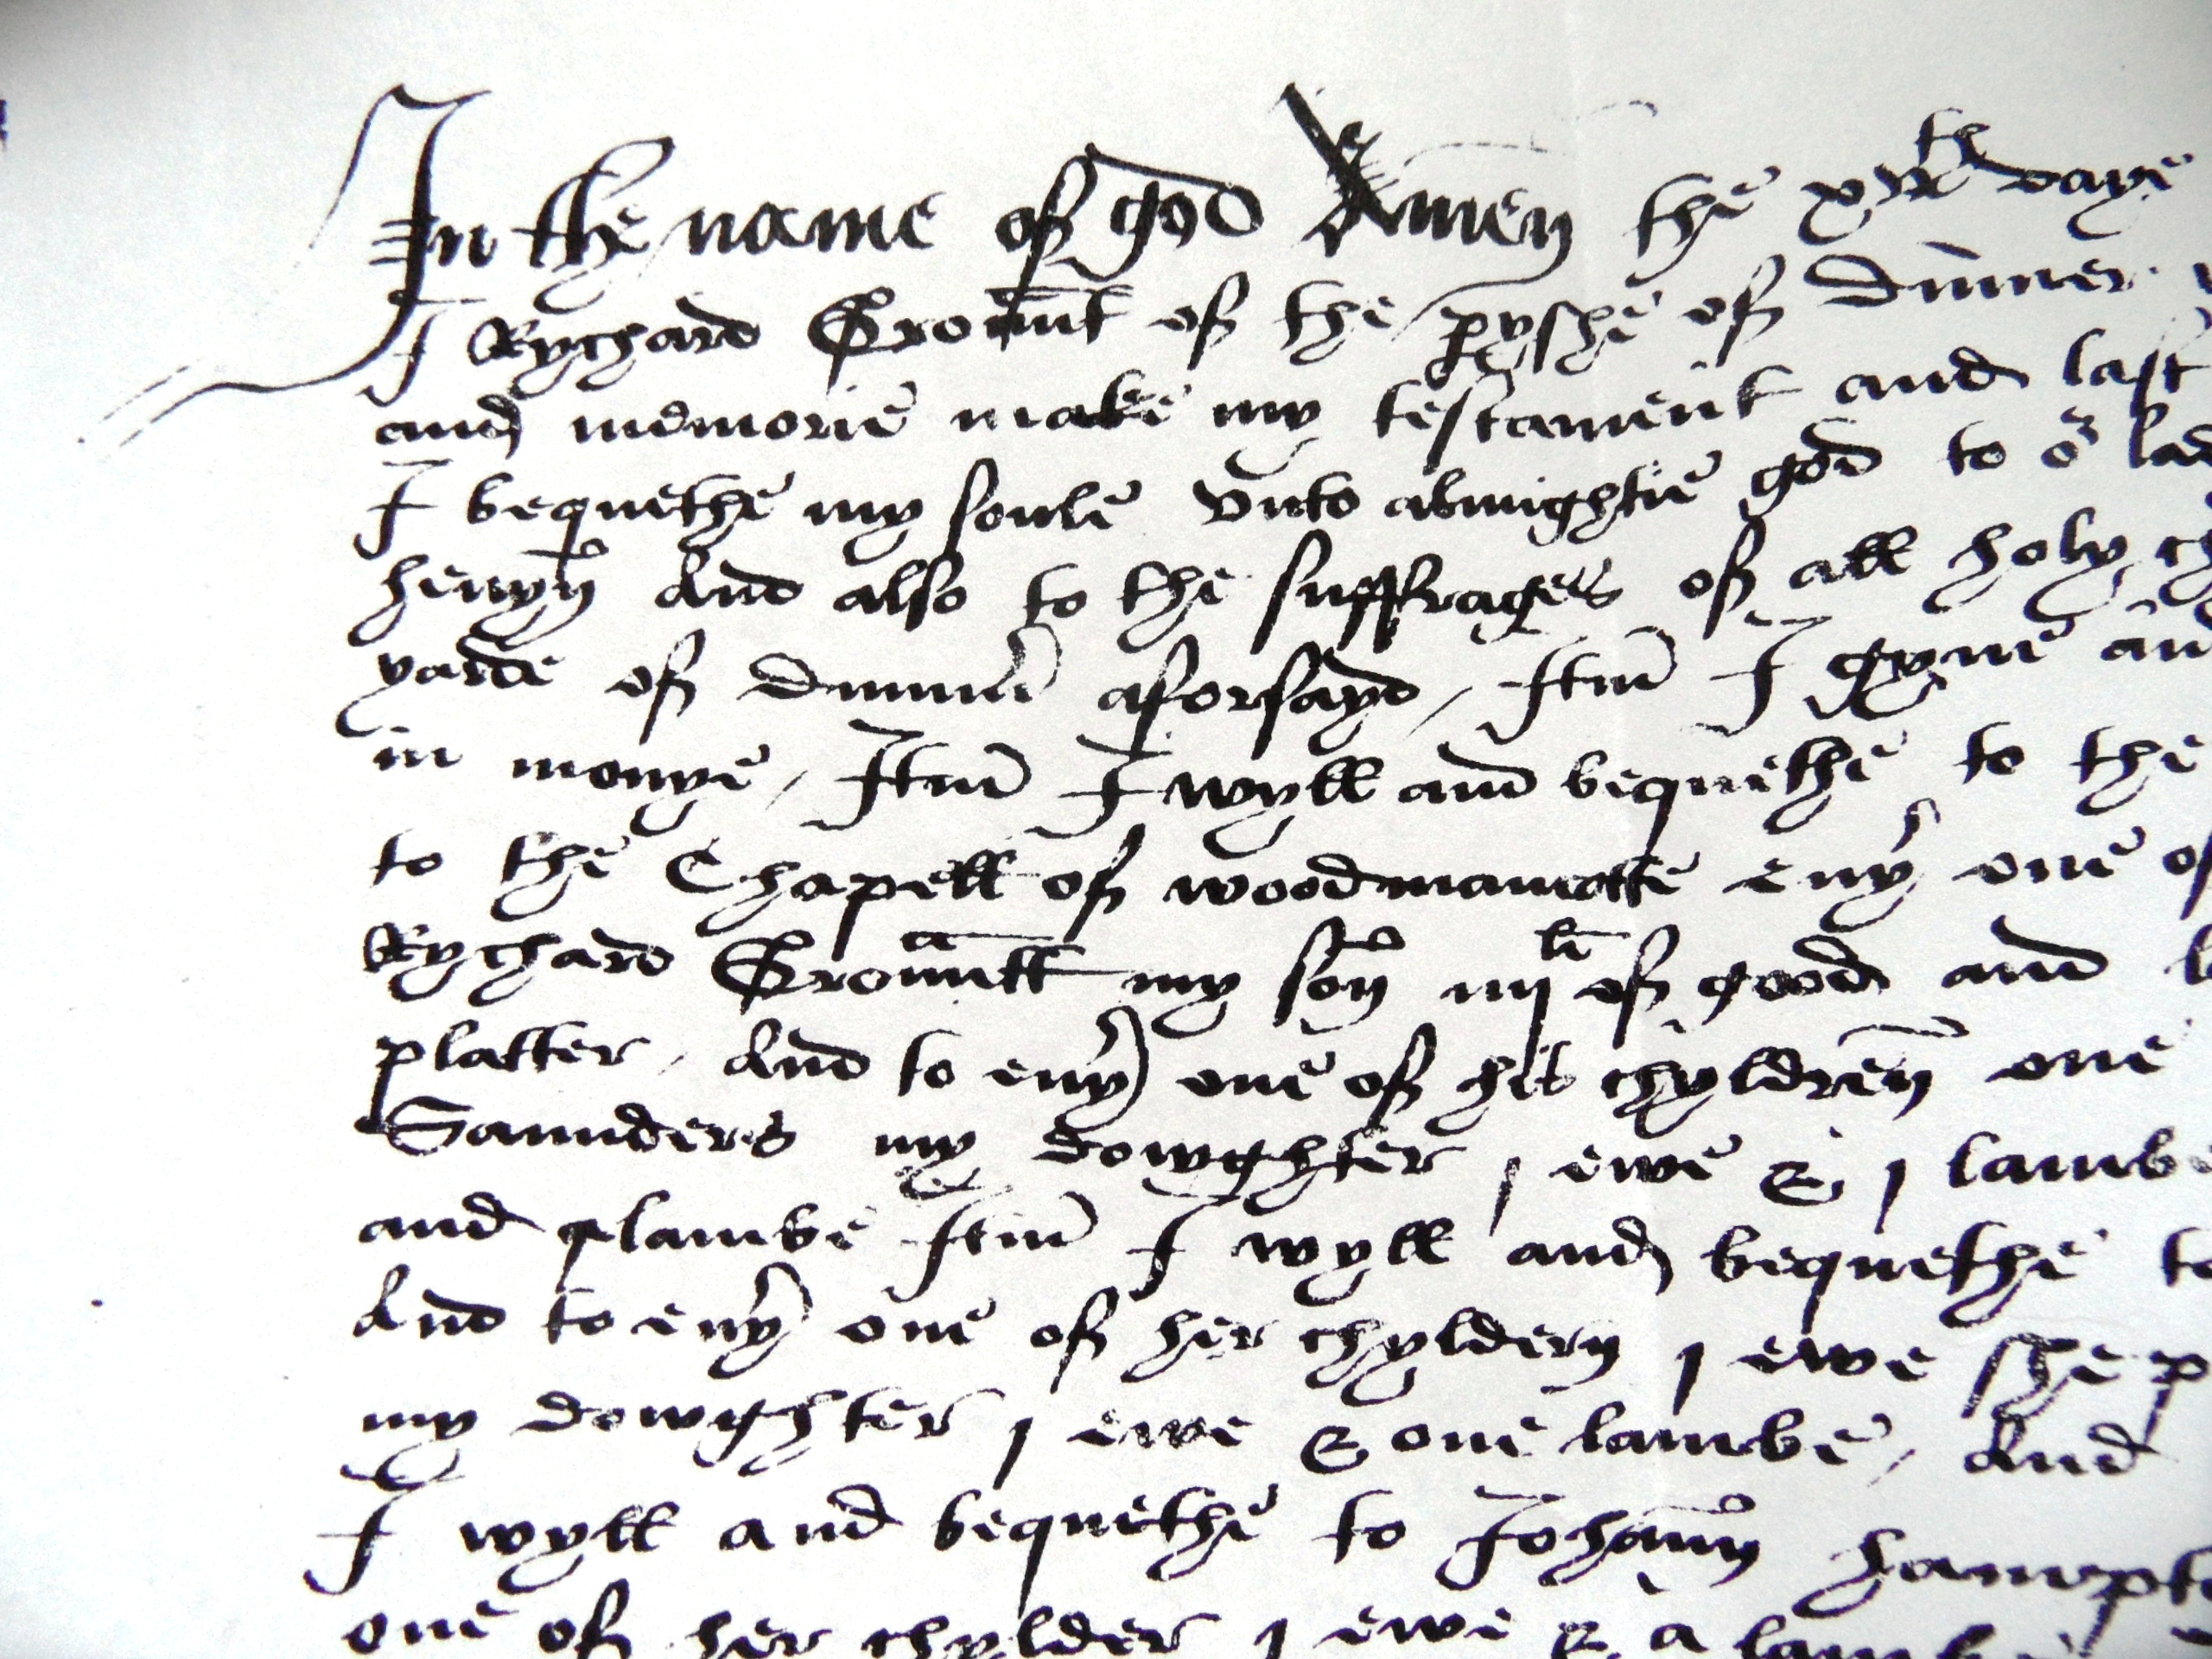 In the name of god Amen the xvth daye
I Rychard Gromut of the pyshe of Dumer
and memorie make my testament and last
I bequethe my soule vnto almightie god to or lad
hevyn And also to the suffrages of all holy ch
yarde of Dummr aforsayd / Itm I gyue and
in monye / Itm I wyll and bequethe to the
to the Chapell of woodmancotte euy one of
Rychard Gromutt my son iiijli of good and
platter / And to euy one of his chyldren one
Saunders my dowghter j ewe & j lambe
and lambe Itm I wyll and bequethe to
And to euy one of her chyldern j ewe shep
my dowghter j ewe & one lambe / And
I wyll and bequethe to Johann hampt
one of her chylder j ewe & a lambe